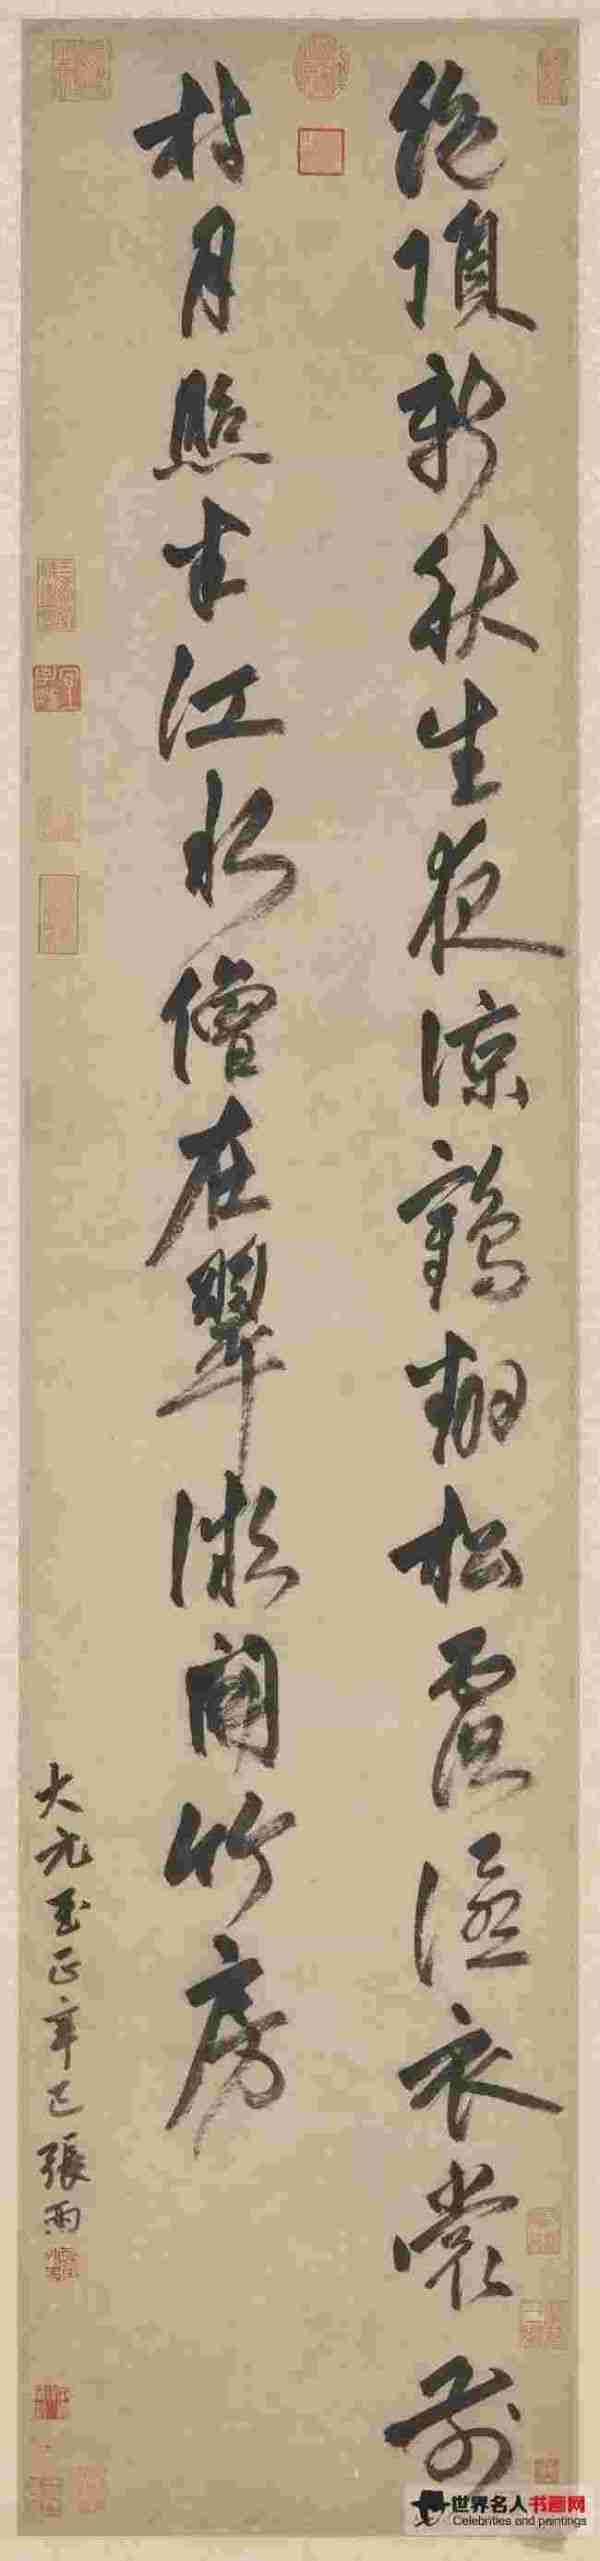 絶頂新秋生夜涼鶴翻松露溼衣裳前
村月照半江水僧在翠微開竹房
大元至正辛巳張雨
世界名人书画网
Celebrities and paintings